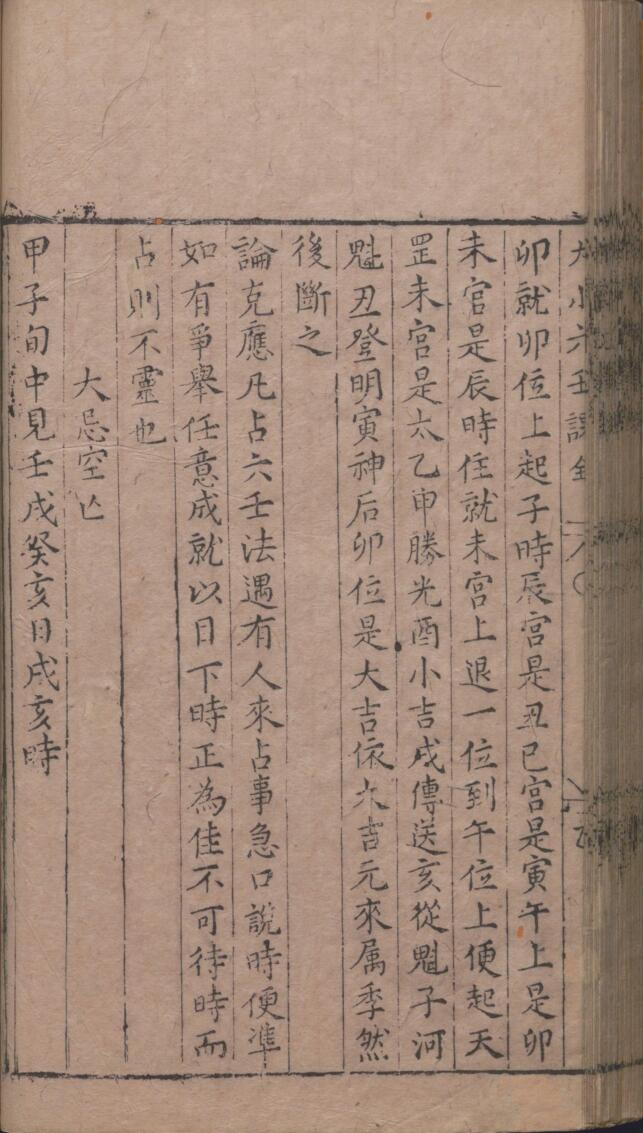 大小六壬課全
卯就卯位上起子時辰宮是丑巳宮是寅午上是卯
未宮是辰時住就未宮上退一位到午位上便起天
罡未宮是太乙申勝光酉小吉戌傳送亥從魁子河
魁丑登明寅神后卯位是大吉依大吉元來属季然
後斷之
論克應凡占六壬法遇有人來占事急口說時便準
如有爭舉任意成就以日下時正為佳不可待時而
占則不靈也
大忌空亡
甲子旬中見壬戌癸亥日戌亥時